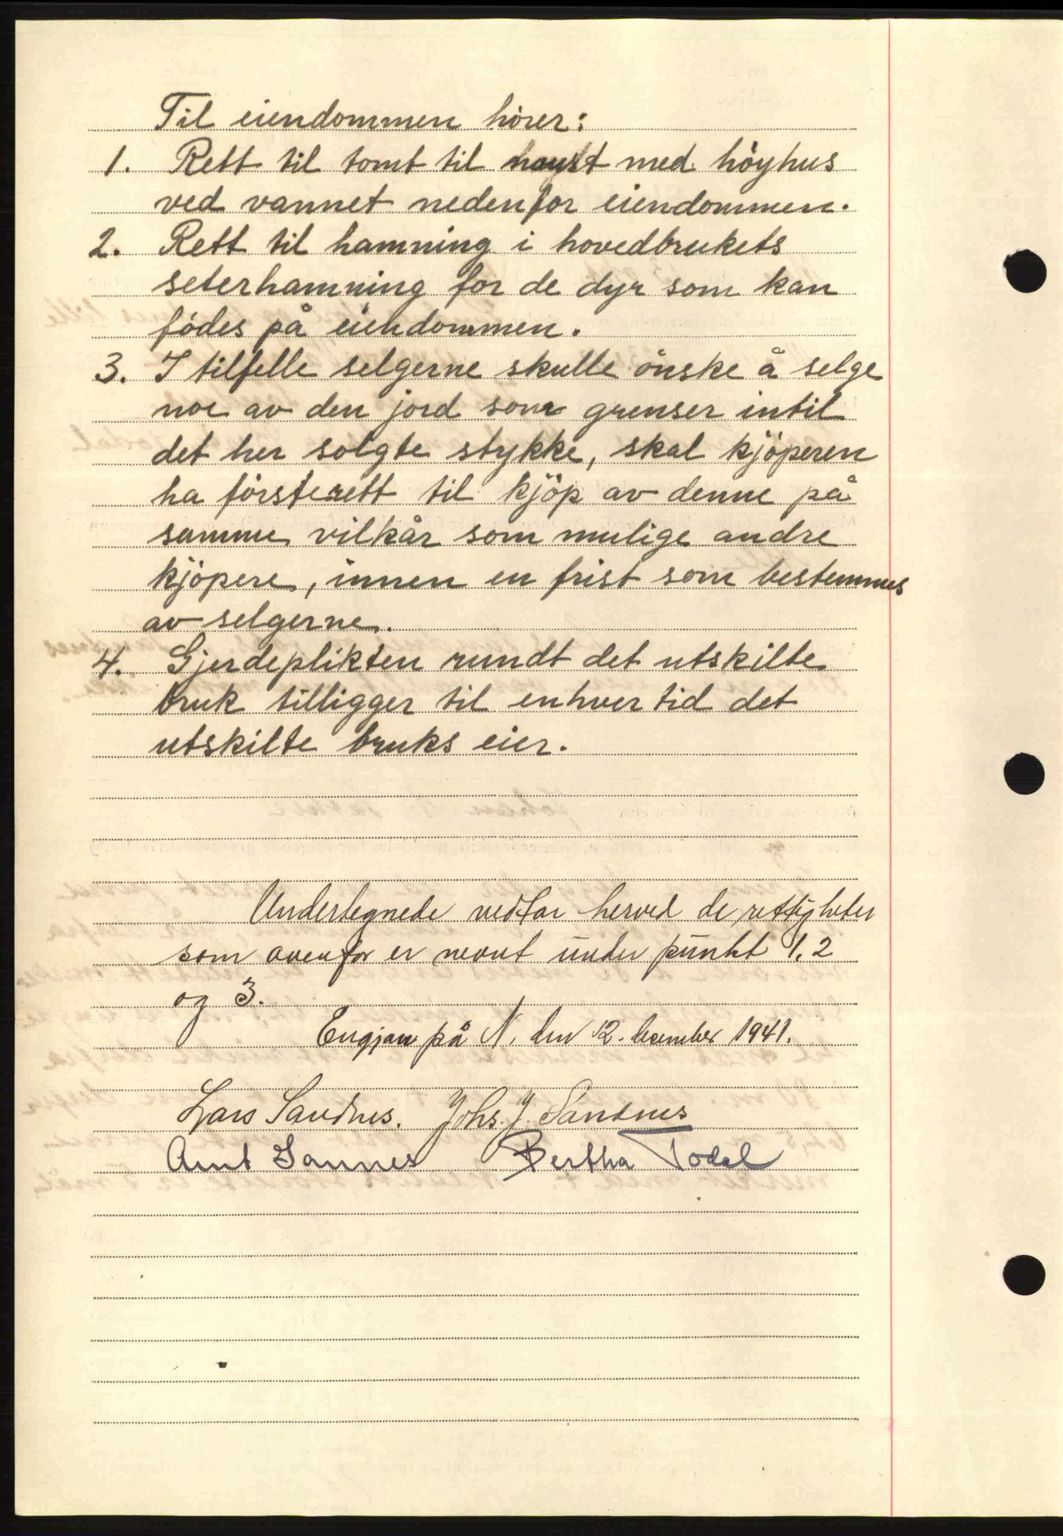 Til eiendommen hörer:
1. Rett til tomt til naust med höyhus
ved vannet nedenfor eiendommen.
2. Rett til hamning i hovedbrukets
seterhamning for de dyr som kan
födes på eiendommen.
3. I tilfelle selgerne skulle önske å selge
noe av den jord som grenser intil
det her solgte stykke, skal kjöperen
ha förste rett til kjöp av denne på
samme vilkår som mulige andre
kjöpere, innen en frist som bestemmes
av selgerne.
4. Gjerdeplikten rundt det utskilte
bruk tilligger til enhver tid det
utskilte bruks eier.
Undertegnede vedtar herved de rettigheter
som ovenfor er nevnt under punkt 1, 2
og 3.
Engjan på N. den 12. desember 1941.
Lars Sandnes. Johs. J. Sandnes
Arnt Sannes Bertha Todal